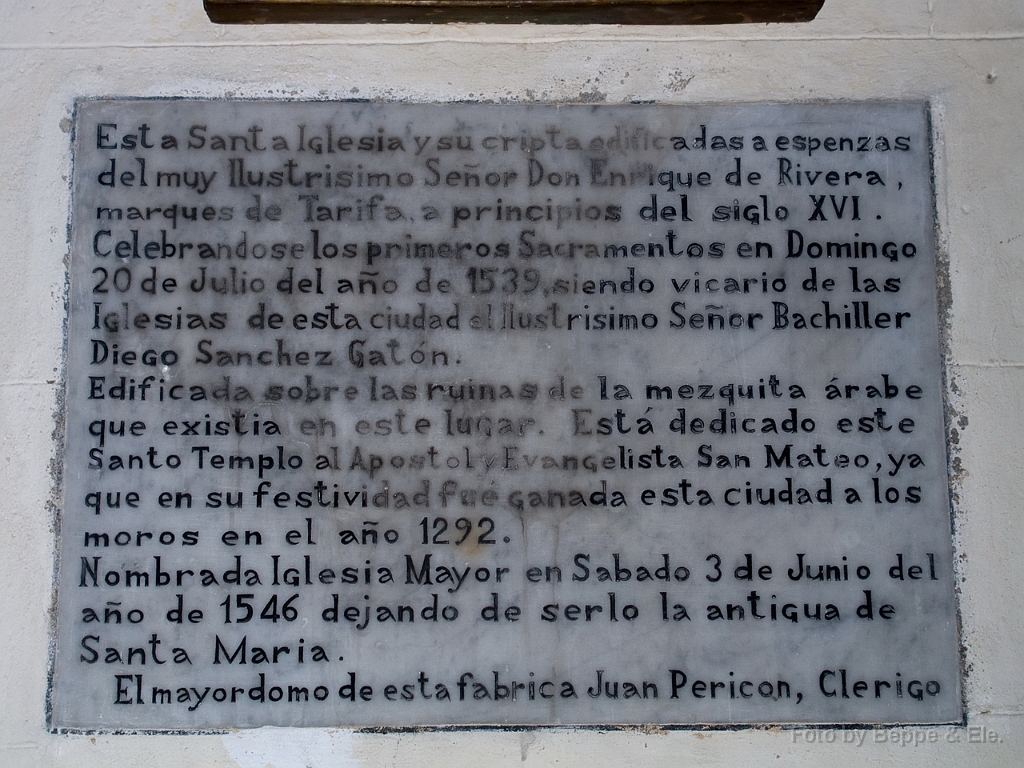 Esta Santa Iglesia y su cripta edificadas a espenzas
del muy Ilustrisimo Señor Don Enrique de Rivera,
marques de Tarifa, a principios del siglo XVI.
Celebrandose los primeros Sacramentos en Domingo
20 de Julio del año de 1539, siendo vicario de las
Iglesias de esta ciudad el Ilustrisimo Señor Bachiller
Diego Sanchez Gatón.
Edificada sobre las ruinas de la mezquita árabe
que existia en este lugar. Está dedicado este
Santo Templo al Apostol y Evangelista San Mateo, ya
que en su festividad fué ganada esta ciudad a los
moros en el año 1292.
Nombrada Iglesia Mayor en Sabado 3 de Junio del
año de 1546 dejando de serlo la antigua de
Santa Maria.
El mayordomo de esta fabrica Juan Pericon, Clerigo
Foto by Beppe & Ele.